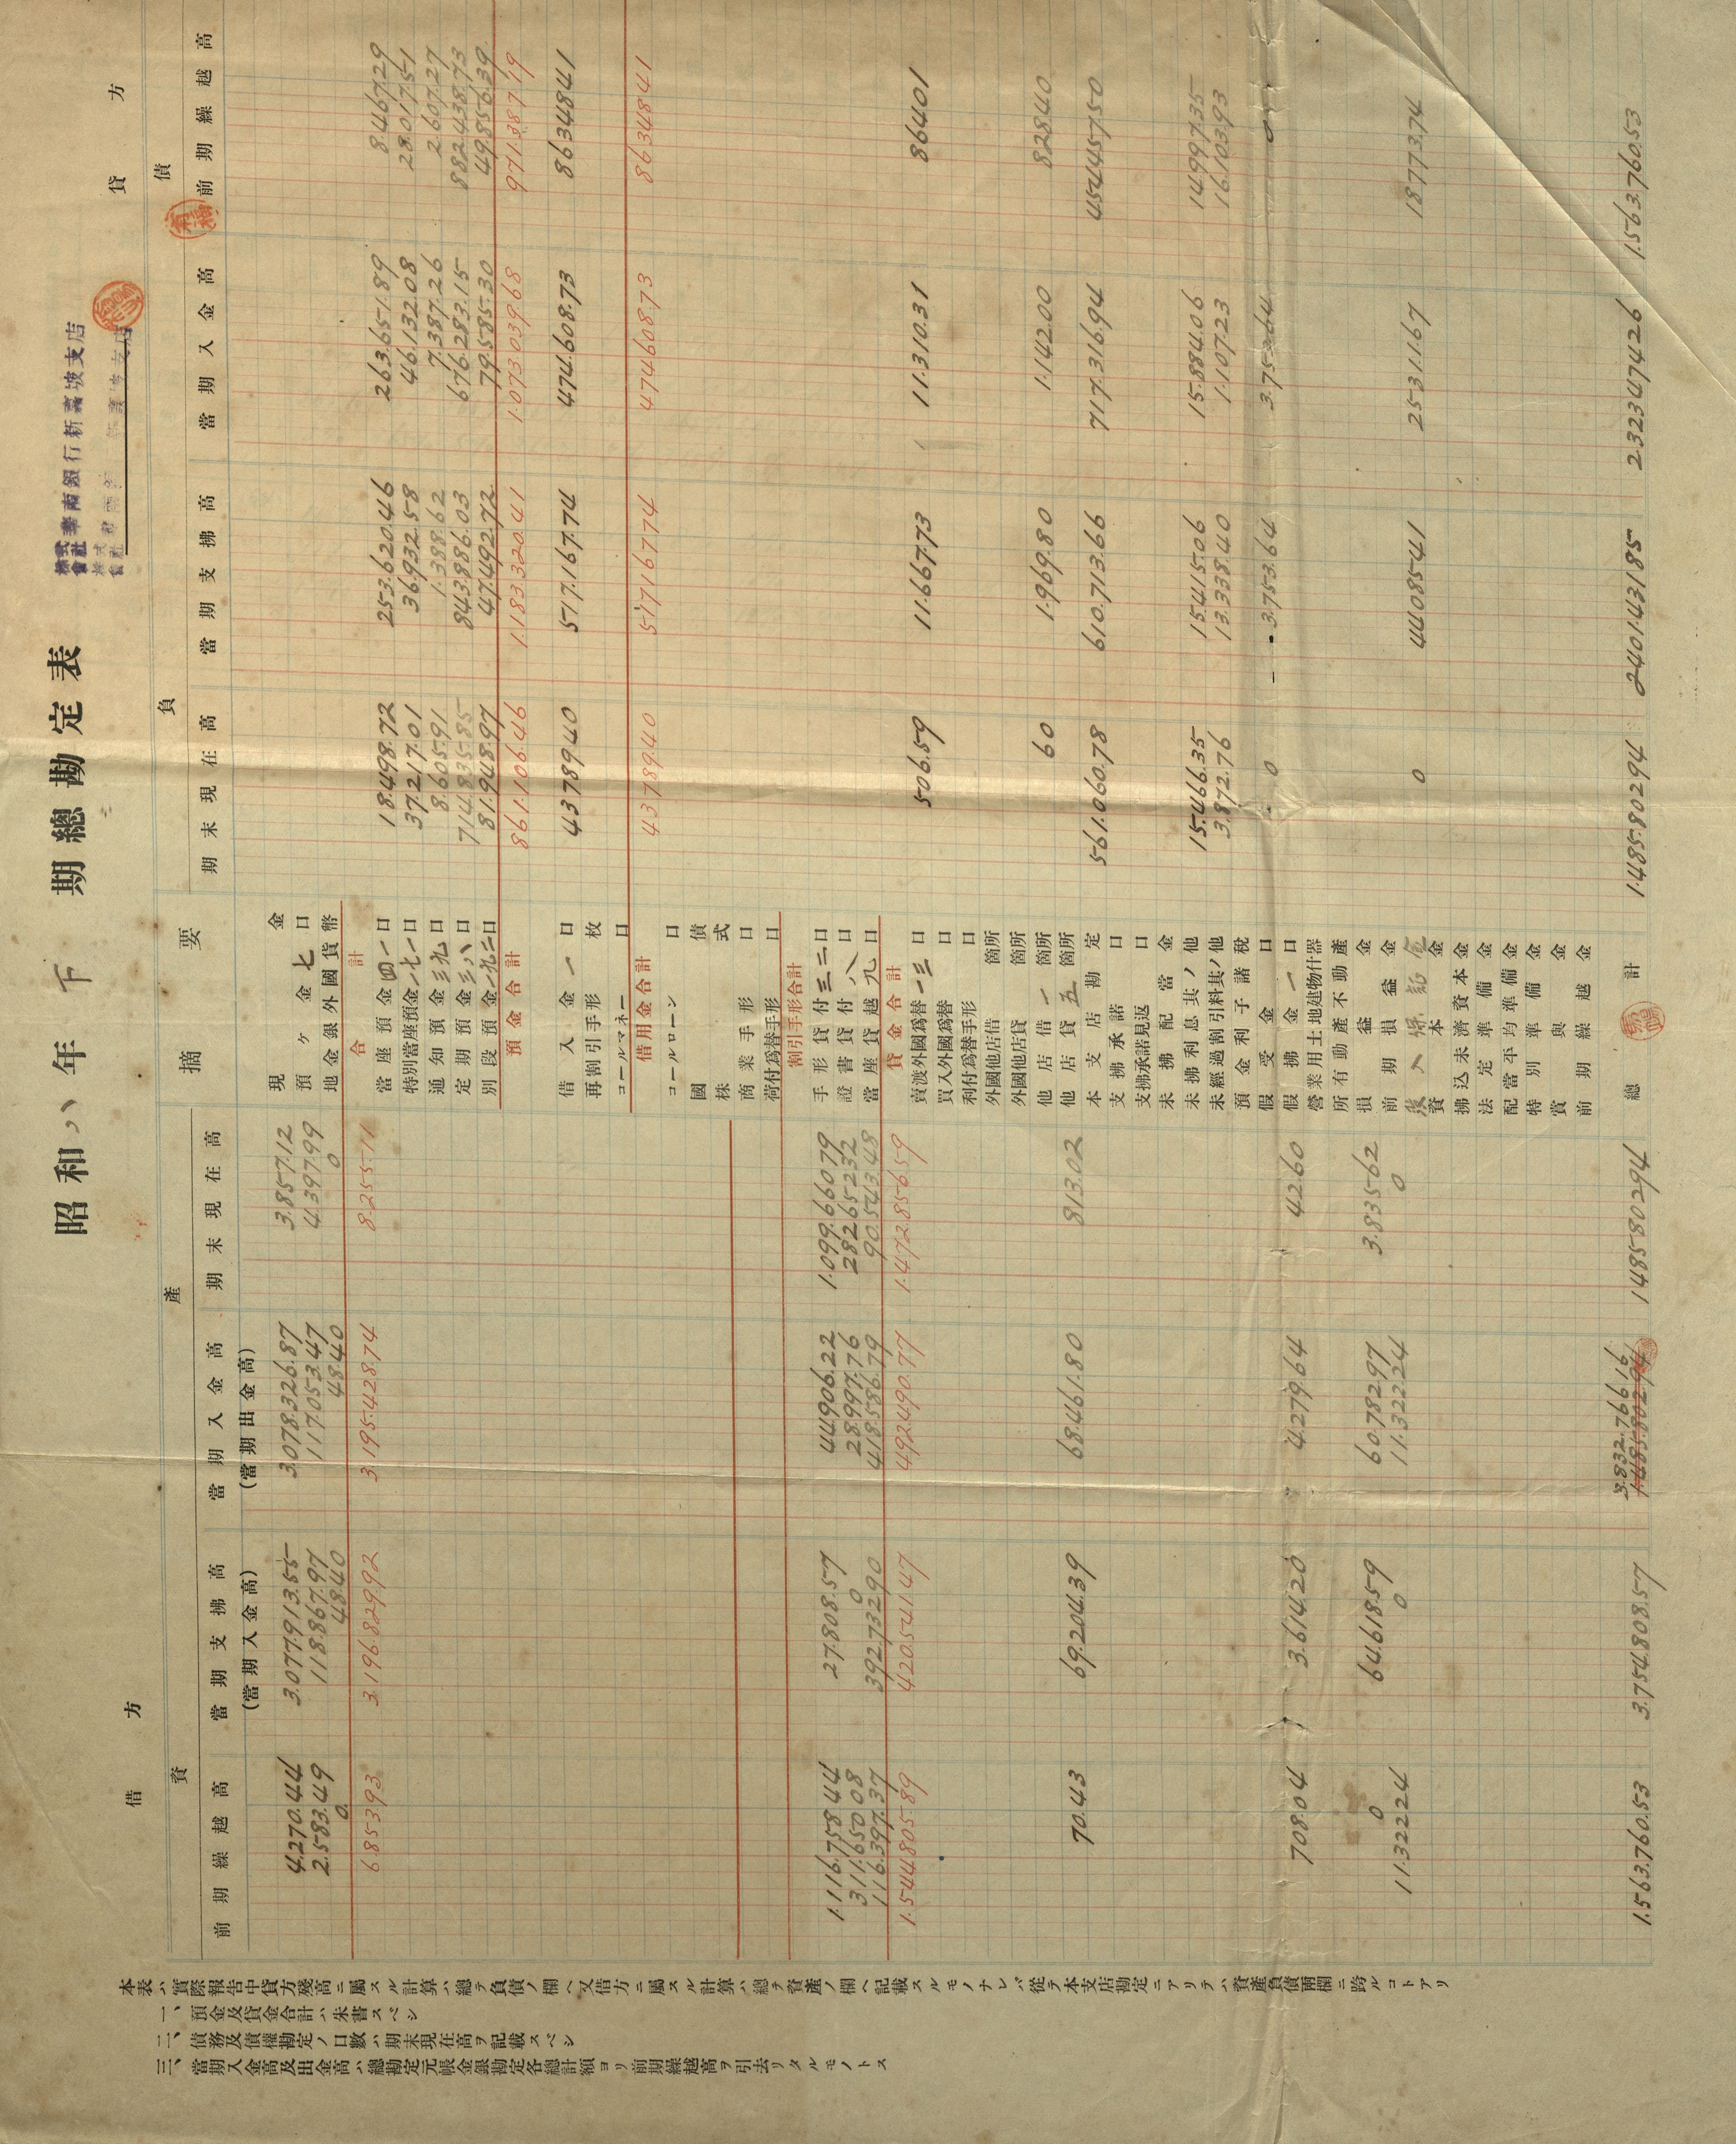 昭和 年 下 期總勘定表
株式會社 華南銀行新嘉坡支店
借 方
貸 方
資 產 摘 要 負 債
前期繰越高 當期支拂高 (當期入金高) 當期入金高 (當期出金高) 期末現在高 期末現在高 當期支拂高 當期入金高 前期繰越高
4.270.44 3.077.913.55 3.078.326.87 3.857.12 現金
2.583.49 118.867.97 117.053.47 4.397.99 預ケ金七口
0 48.40 48.40 0 地金銀外國貨幣
6.853.93 3.196.829.92 3.195.428.74 8.255.11 合計
當座預金四一口 18.498.72 253.620.46 263.651.89 8.467.29
特別當座預金一七一口 37.217.01 36.932.58 46.132.08 28.017.51
通知預金三九口 8.605.91 1.388.62 7.387.26 2.607.27
定期預金三八口 714.835.85 843.886.03 676.283.15 882.438.73
別段預金一九二口 81.948.97 47.492.72 79.585.30 49.856.39
預金合計 861.106.46 1.183.320.41 1.073.039.68 971.387.19
借入金一口 43.789.40 517.167.74 474.608.73 86.348.41
再割引手形 枚
コールマネー 口
借用金合計 43.789.40 517.167.74 474.608.73 86.348.41
コールローン 口
國債
株式
商業手形 口
荷付爲替手形 口
割引手形合計
1.116.758.44 27.808.57 44.906.22 1.099.660.79 手形貸付三二口
311.650.08 0 28.997.76 282.652.32 證書貸付八口
116.397.37 392.732.90 418.586.79 90.543.48 當座貸越九口
1.544.805.89 420.541.47 492.490.77 1.472.856.59 貸金合計
賣渡外國爲替一三口 506.59 11.667.73 11.310.31 864.01
買入外國爲替 口
利付爲替手形 口
外國他店借 箇所
外國他店貸 箇所
他店借一箇所 60 1.969.80 1.142.00 828.40
70.43 69.204.39 68.461.80 813.02 他店貸五箇所
本支店勘定 561.060.78 610.713.66 717.316.94 454.457.50
支拂承諾 口
支拂承諾見返 口
未拂配當金
未拂利息其ノ他 15.466.35 15.415.06 15.884.06 14.997.35
未經過割引料其ノ他 3.872.76 13.338.40 1.107.23 16.103.93
預金利子諸稅
假受金 口 0 3.753.64 3.753.64 0
708.04 3.614.20 4.279.64 42.60 假拂金一口
營業用土地建物什器
所有動產不動產
0 64.618.59 60.782.97 3.835.62 損益金
11.322.24 0 11.322.24 0 前期損益金
0 44.085.41 25.311.67 18.773.74
資本金
拂込未濟資本金
法定準備金
配當平均準備金
特別準備金
賞與金
前期繰越金
1.563.760.53 3.754.808.57 3.832.766.16 1.485.802.94 1.485.802.94 總計 1.485.802.94 2.401.431.85 2.323.474.26 1.563.760.53
本表ハ實際報告中貸方殘高ニ屬スル計算ハ總テ負債ノ欄ヘ又借方ニ屬スル計算ハ總テ資產ノ欄ヘ記載スルモノナレバ從テ本支店勘定ニアリテハ資產負債兩欄ニ跨ルコトアリ
一、預金及貸金合計ハ朱書スベシ
二、債務及債權勘定ノ口數ハ期末現在高ヲ記載スベシ
三、當期入金高及出金高ハ總勘定元帳金銀勘定各總計額ヨリ前期繰越高ヲ引去リタルモノトス